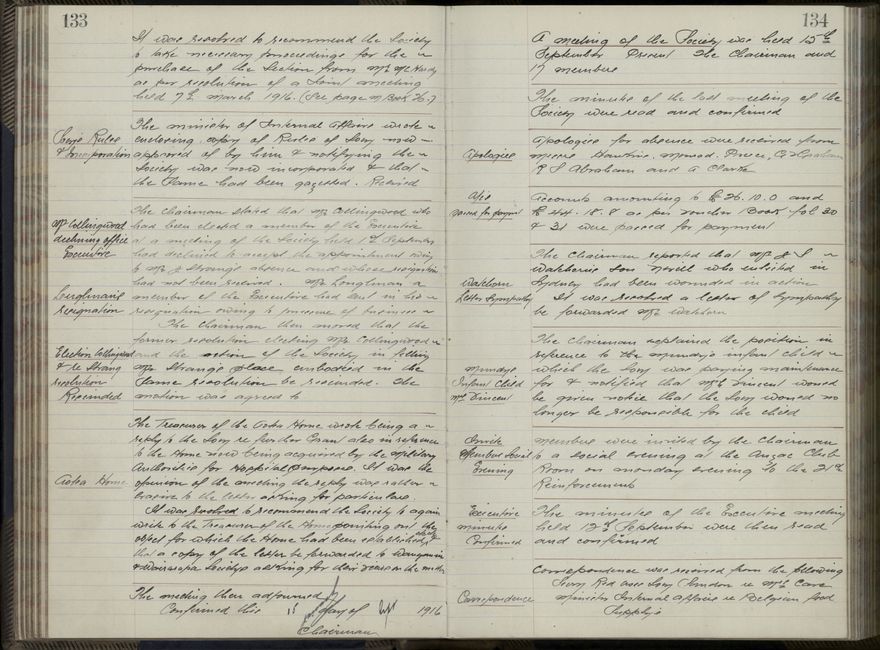 133
It was resolved to recommend the Society
to take necessary proceedings for the
purchase of the Section from Mr
as per resolution of a Joint meeting
held 7th March 1916. (See page 17 Book 26.)
The minister of Internal affairs wrote
enclosing copy of Rules of Socy now
Rules
& Incorporation
approved of by him & notifying the
Society was now incorporated & that
the Same had been gazetted. Received
The Chairman stated that Mr Collingwood who
Mr Collingwood
declining office
Executive
had been elected a member of the Executive
at a meeting of the Society held 1st September
had declined to accept the appointment owing
to Mr J Strangs absence and whose resignation
had not been received. Mr Longlmans a
Longlmans
resignation
member of the Executive had sent in his
resignation owing to pressure of business
The Chairman then moved that the
former resolution electing Mr Collingwood
Election Collingwood
& re Strang
resolution
Rescinded
and the action of the Society in filling
Mr Strangs place embodied in the
Same resolution be rescinded. The
motion was agreed to
The Treasurer of the Aotea Home wrote being a
reply to the Socy re further Grant also in reference
to the Home now being acquired by the Military
Authorities for Hospital purposes. It was the
Aotea Home
opinion of the meeting the reply was rather
evasive to the letter asking for particulars.
It was resolved to recommend the Society to again
write to the Treasurer of the Home pointing out the
object for which the Home had been established &
that a copy of the letter be forwarded to Wanganui
& Wairarapa Societys asking for their views on the matter
The meeting then adjourned
Confirmed this 15 day of Sept 1916
Chairman
134
A meeting of the Society was held 15th
September Present The Chairman and
17 members
The minutes of the last meeting of the
Society were read and confirmed
Apologies for absence were received from
Apologies
Messrs Hawkins,
R S Abraham and A Clark
Accounts amounting to £26.10.0 and
passed for payment
£44.18.8 as per voucher Book fol 30
& 31 were passed for payment
The Chairman reported that Mr J S
Watchorns Son Nevill who enlisted in
Watchorn
Letter Sympathy
Sydney had been wounded in action
It was resolved a letter of Sympathy
be forwarded Mr Watchorn
The Chairman explained the position in
reference to the Mundays infant child
Mundays
Infant Child
Mrs Vincent
which the Socy was paying maintenance
for & notified that Mrs Vincent would
be given notice that the Socy would no
longer be responsible for the child
Invite
Members Social
Evening
members were invited by the Chairman
to a social evening at the Anzac Club
Room on monday evening to the 21st
Reinforcements
Executive
minutes
Confirmed
The minutes of the Executive meeting
held 12th September were then read
and confirmed
Correspondence was received from the following
Socy Red Cross Socy London re Mrs Care
Correspondence
Minister Internal affairs re Belgium food
Supplys